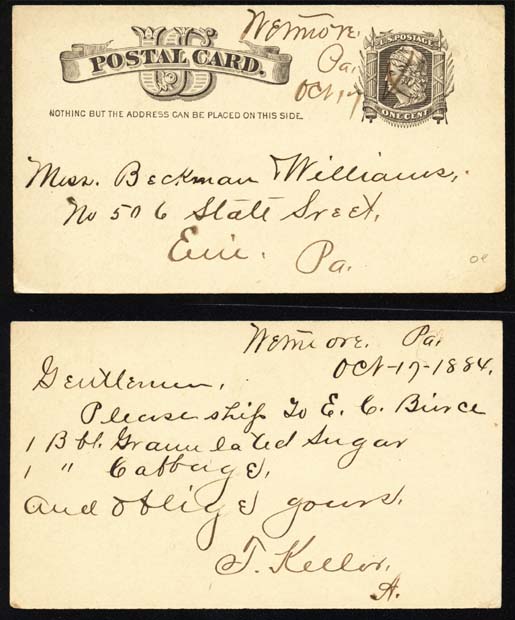 Wetmore.
Pa.
Oct 17
U.S. POSTAGE
ONE CENT
US
POSTAL CARD.
NOTHING BUT THE ADDRESS CAN BE PLACED ON THIS SIDE.
Mess. Beckman Williams,
No 506 State Sreet,
Erie. Pa.
Wetmore. Pa.
Oct-17-1884.
Gentlemen,
Please ship To E. C. Burce
1 Bbl. Granulated Sugar
1 " Cabbage,
And oblige yours,
T. Keller,
A.